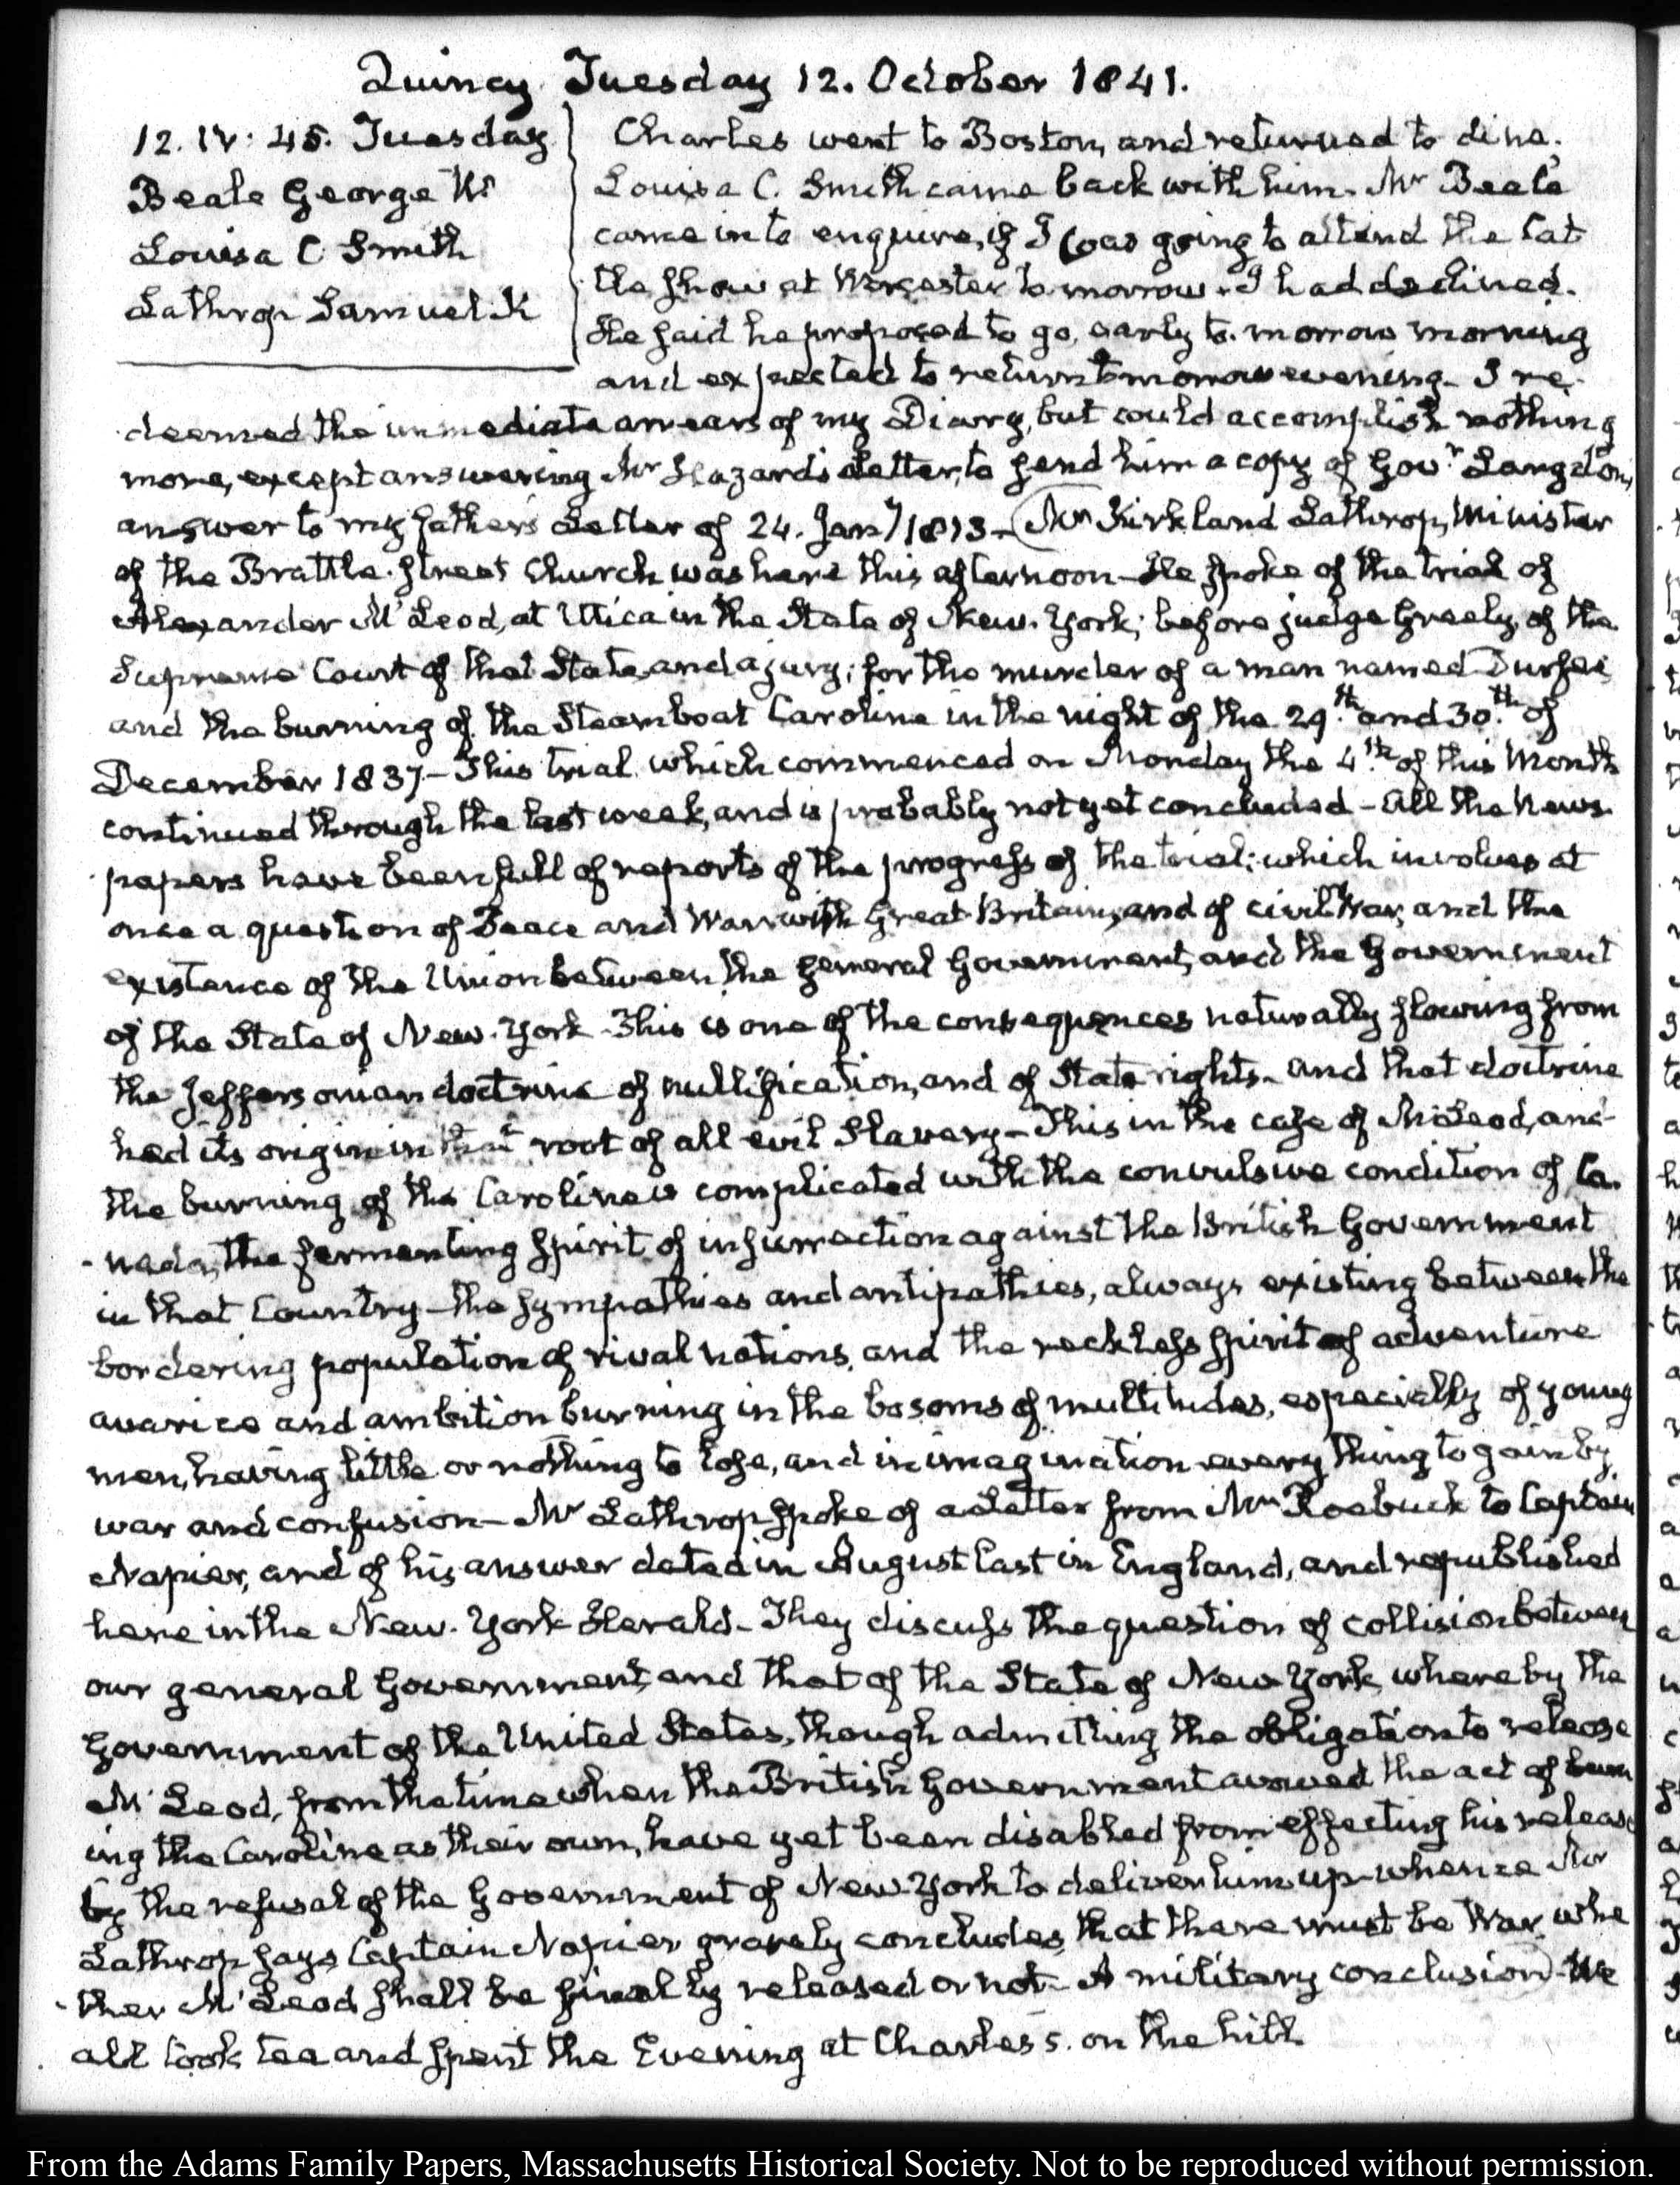 Quincy Tuesday 12. October 1841.
12. IV: 45. Tuesday
Beale George W
Louisa C Smith
Lathrop Samuel K
Charles went to Boston, and returned to dine.
Louisa C. Smith came back with him. Mr Beale
came in to enquire, if I was going to attend the Cat
tle show at Worcester to-morrow. I had declined.
He said he proposed to go, early to-morrow morning
and expected to return to morrow evening. I re-
deemed the immediate arrears of my Diary, but could accomplish nothing
more, except answering Mr Hazard's letter, to send him a copy of Govr Langdon's
answer to my father's Letter of 24. Jany 1813 – Mr Kirkland Lathrop, Minister
of the Brattle-street Church was here this afternoon – He spoke of the trial of
Alexander McLeod, at Utica in the State of New-York; before judge Greely, of the
Supreme Court of that State, and a jury; for the murder of a man named Durfee,
and the burning of the Steamboat Caroline in the night of the 29th and 30th of
December 1837 – This trial which commenced on Monday the 4th of this Month
continued through the last week, and is probably not yet concluded – All the News-
papers have been full of reports of the progress of the trial: which involves at
once a question of Peace and War with Great-Britain, and of civil War, and the
existence of the Union between the general Government, and the Government
of the State of New-York – This is one of the consequences naturally flowing from
the Jeffersonian doctrine of nullification, and of State rights – and that doctrine
had its origin in that root of all evil Slavery – This in the case of McLeod, and
the burning of the Caroline is complicated with the convulsive condition of Ca-
-nada, the fermenting spirit of insurrection against the British Government
in that Country – the sympathies and antipathies, always existing between the
bordering population of rival nations, and the reckless spirit of adventure
avarice and ambition burning in the bosoms of multitudes, especially of young
men, having little or nothing to lose, and in imagination every thing to gain by
war and confusion – Mr Lathrop spoke of a Letter from Mr Roebuck to Captain
Napier, and of his answer dated in August last in England, and republished
here in the New-York Herald – They discuss the question of collision between
our general Government, and that of the State of New York, whereby the
Government of the United States, though admitting the obligation to release
McLeod, from the time when the British Government avowed the act of burn
ing the Caroline as their own, have yet been disabled from effecting his release
by the refusal of the Government of New-York to deliver him up – whence Mr
Lathrop says Captain Napier gravely concludes, that there must be War, whe
-ther McLeod shall be finally released or not – A military conclusion – We
all took tea and spent the Evening at Charles's. on the hill.
From the Adams Family Papers, Massachusetts Historical Society. Not to be reproduced without permission.